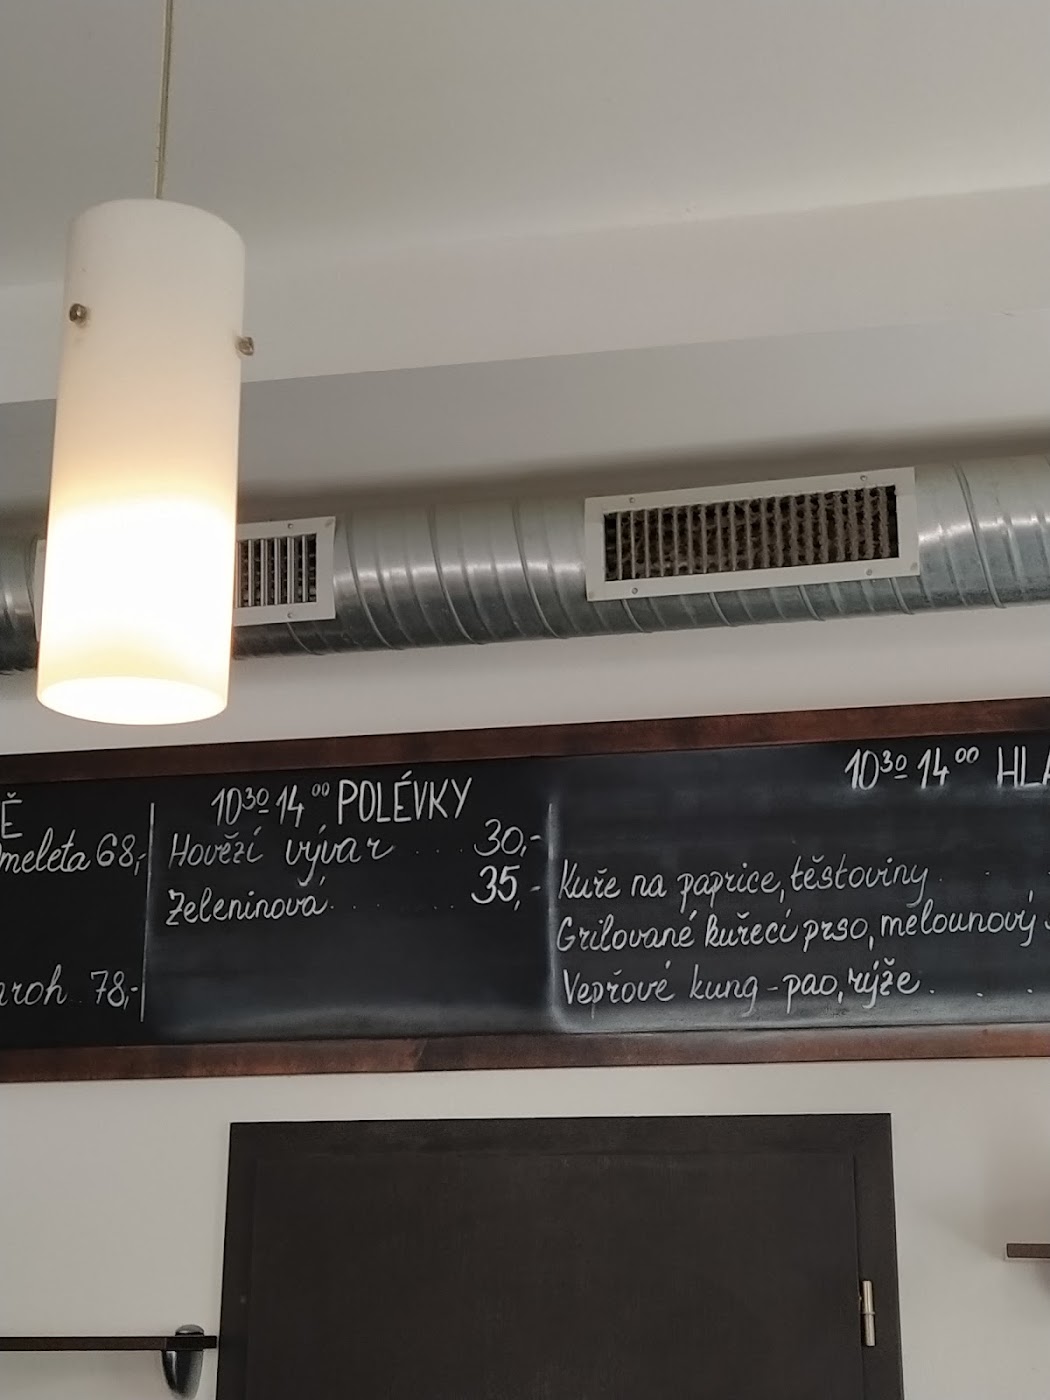 Ě
meleta 68,-
aroh 78,-
10³⁰ 14⁰⁰ POLÉVKY
Hovězí vývar .... 30,-
Zeleninová ..... 35,-
10³⁰ 14⁰⁰ HLA
Kuře na paprice, těstoviny
Grilované kuřecí prso, melounový
Vepřové kung-pao, rýže . . .